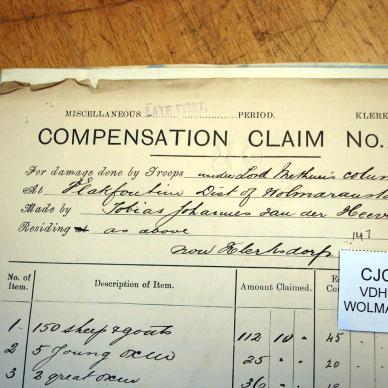 MISCELLANEOUS LATE FIRST. PERIOD. KLERK
COMPENSATION CLAIM No.
For damage done by Troops under Lord Methuen's column
At Plakfontein Dist of Wolmaransta
Made by Tobias Johannes van der Heever
Residing at as above
now Klerksdorp 147
CJC
VDH
WOLMA
No. of Item. Description of Item. Amount Claimed.
1 150 sheep & goats 112 10 " 45
2 5 young oxen 25 " " 20
3 2 great oxen 36 " "